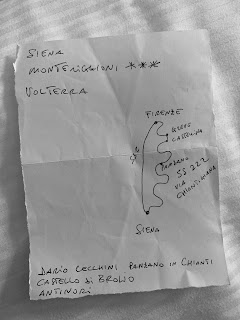 SIENA
MONTERIGGIONI ***
VOLTERRA
FIRENZE
GREVE
PANZANO
SS 222
VIA
CHIANTIGIANA
SIENA
DARIO CECCHINI PANZANO IN CHIANTI
CASTELLO DI BROLIO
ANTINORI